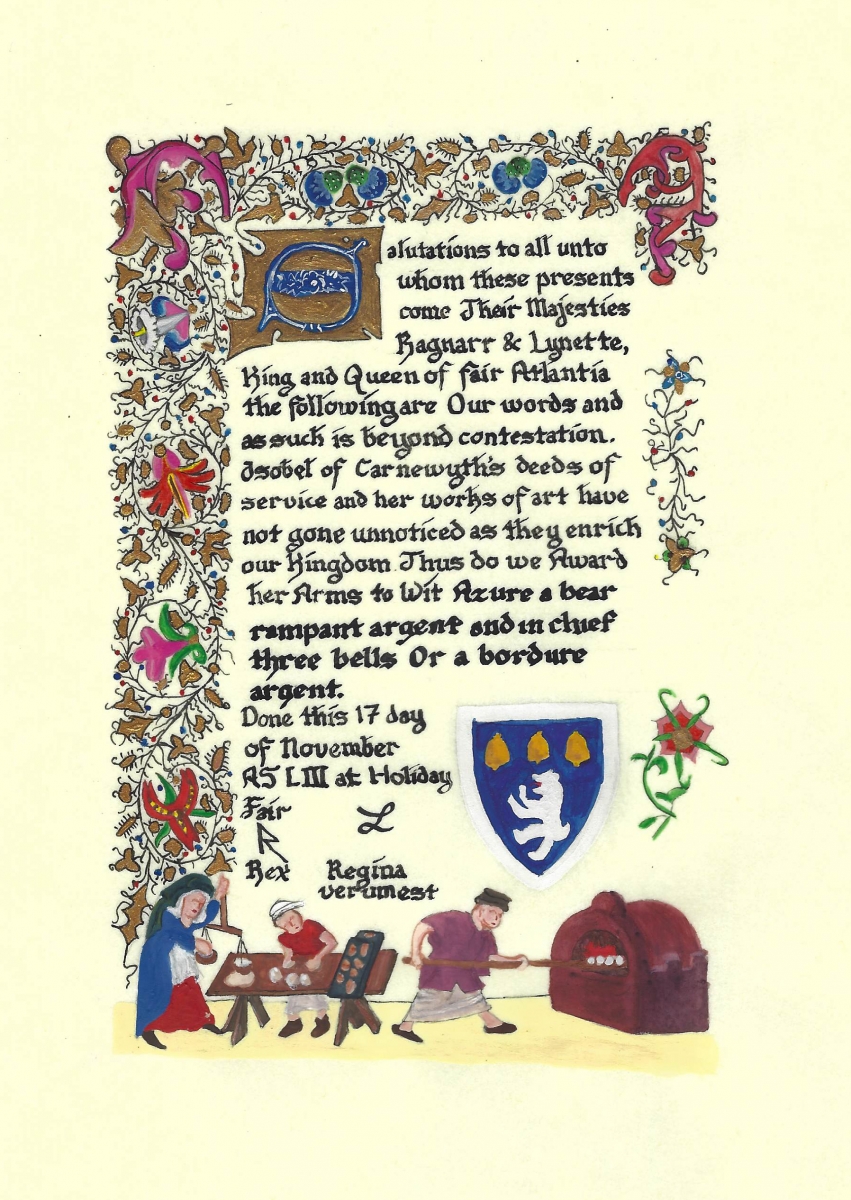 Salutations to all unto
whom these presents
come Their Majesties
Ragnarr & Lynette,
King and Queen of fair Atlantia
the following are Our words and
as such is beyond contestation.
Isobel of Carnewyth's deeds of
service and her works of art have
not gone unnoticed as they enrich
our Kingdom. Thus do we Award
her Arms to Wit Azure a bear
rampant argent and in chief
three bells Or a bordure
argent.
Done this 17 day
of November
AS LIII at Holiday
Fair
R L
Rex Regina
verumest